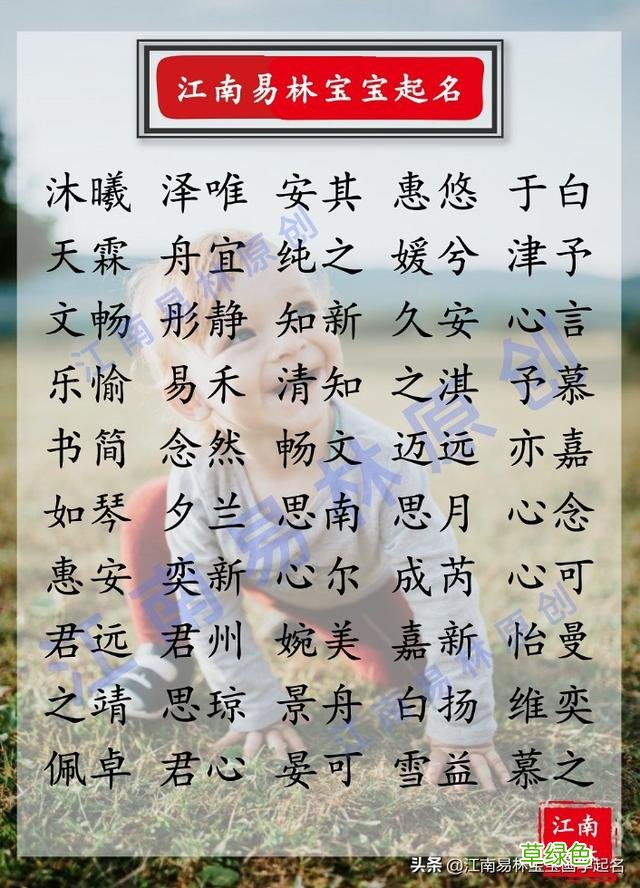 江南易林宝宝起名
沐曦 泽唯 安其 惠悠 于白
天霖 舟宜 纯之 媛兮 津予
文畅 彤静 知新 久安 心言
乐愉 易禾 清知 之淇 予慕
书简 念然 畅文 迈远 亦嘉
如琴 夕兰 思南 思月 心念
惠安 奕新 心尔 成芮 心可
君远 君州 婉美 嘉新 怡曼
之靖 思琼 景舟 白扬 维奕
佩卓 君心 晏可 雪益 慕之
江南易林原创
江南易林原创
江南易林原创
江南
草绿色
头条 @江南易林宝宝国学起名